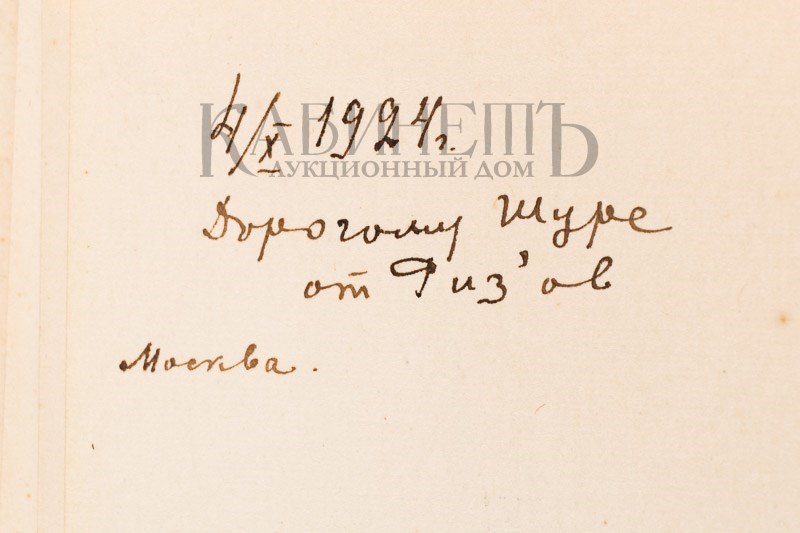 4/X 1924 г.
КАБИНЕТЪ
АУКЦИОННЫЙ ДОМ
Дорогому Шуре
от Риз'ов
Москва.